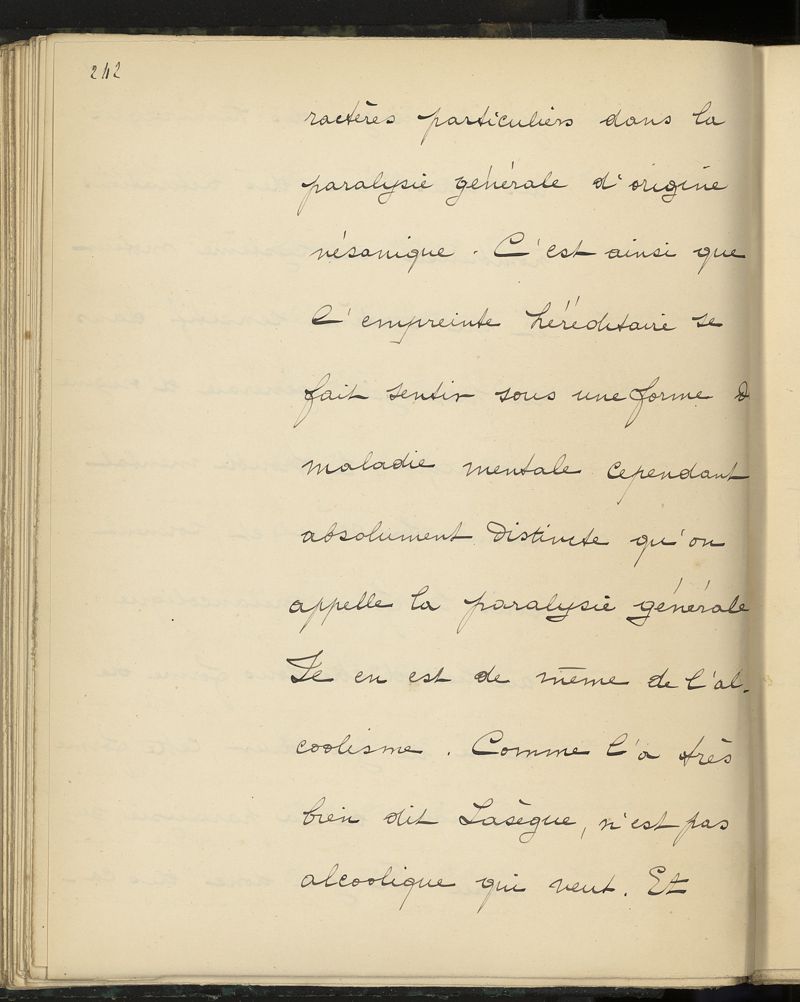 242
ractères particuliers dans la
paralysie générale d'origine
vésanique. C'est ainsi que
l'empreinte héréditaire se
fait sentir sous une forme d
maladie mentale cependant
absolument distincte qu'on
appelle la paralysie générale
Il en est de même de l'al-
coolisme. Comme l'a très
bien dit Lasègue, n'est pas
alcoolique qui veut. Et